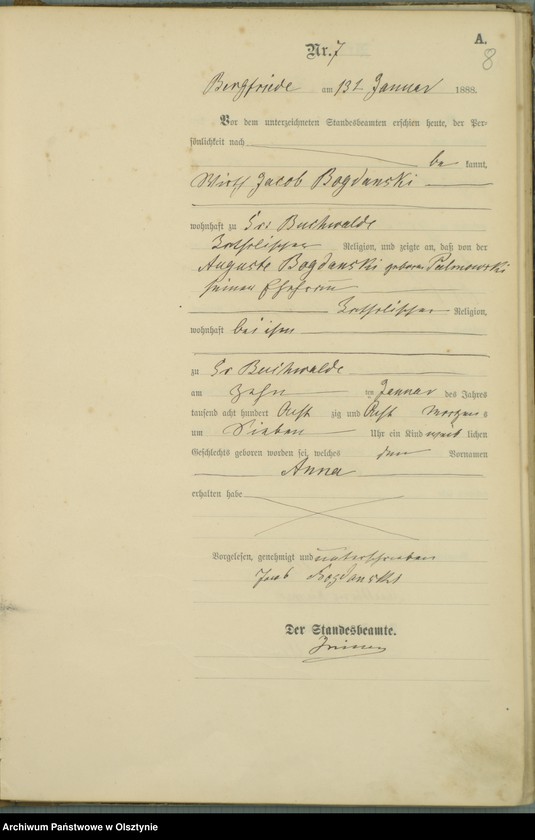 A.
8
Nr. 7
Bergfriede am 13t Januar 1888.
Vor dem unterzeichneten Standesbeamten erschien heute, der Per-
sönlichkeit nach
be kannt,
Wirth Jacob Bogdanski
wohnhaft zu Gr. Buchwalde
katholischer Religion, und zeigte an, daß von der
Auguste Bogdanski geborene
seiner Ehefrau
katholischer Religion,
wohnhaft bei ihm
zu Gr Buchwalde
am zehn ten Januar des Jahres
tausend acht hundert Acht zig und Acht Morgens
um Sieben Uhr ein Kind weib lichen
Geschlechts geboren worden sei, welches den Vornamen
Anna
erhalten habe
Vorgelesen, genehmigt und unterschrieben
Jacob Bogdanski
Der Standesbeamte.
Archiwum Państwowe w Olsztynie